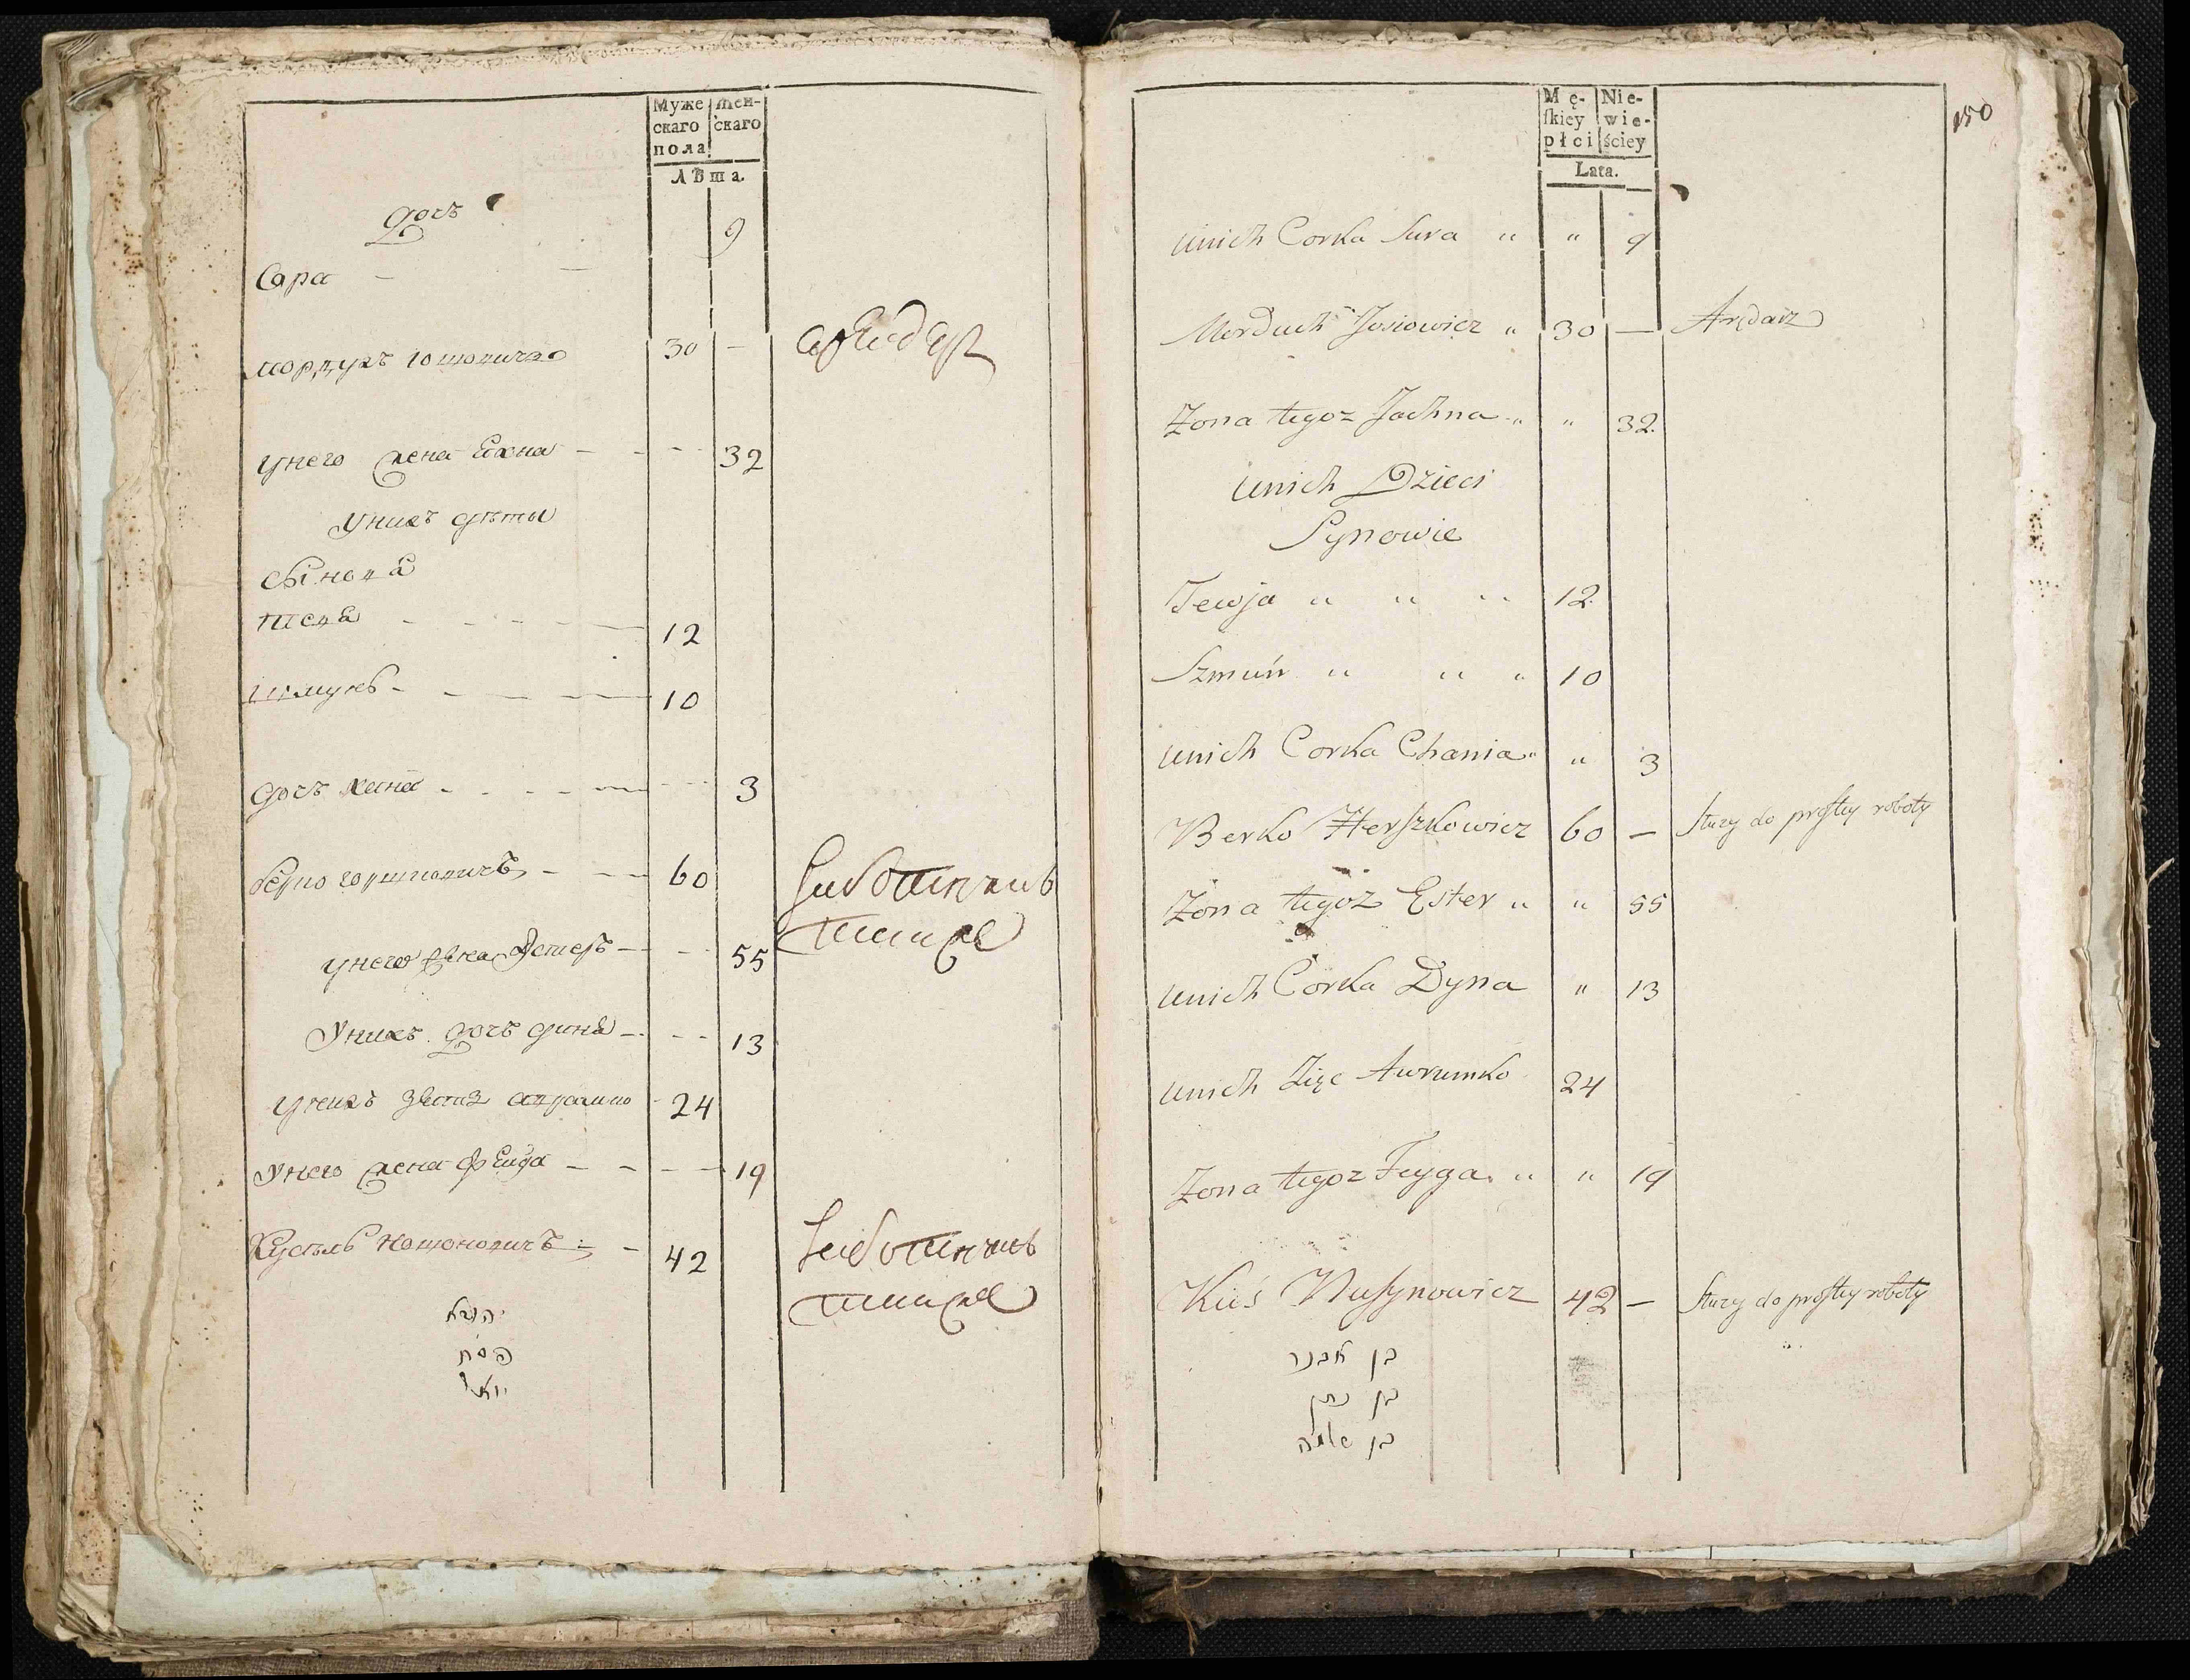 Муже
скаго
пола
жен-
скаго
Лѣта.
дочь 9
Сара
мордухъ іошовичъ 30 — арендарь
унего жена Ехна 32
унихъ дѣти
Сынова
тевя 12
шмунь 10
дочь хана 3
берко гершковичъ 60
унего жена Эстеръ 55
унихъ дочь дина 13
унихъ зять аврамко 24
унего жена фейга 19
42
יהודא
פסח
יואל
Mę-
ſkiey
płci
Nie-
wie-
ściey
Lata.
150
unich Corka Sura " " 9
Morduch Josiowicz " 30 — Arędarz
Zona tegoz Jachna " " 32.
unich Dzieci
Synowie
Tewja " " " 12.
Szmuń " " " 10
unich Corka Chania " " 3
Berko Herſzkowicz 60 — Służy do proſtey roboty
Zona tegoz Ester " " 55
unich Corka Dyna " 13
unich Zięc Awrumko 24
Zona tegoz Feyga " " 19
Kuś Nuſynowicz 42 — Służy do proſtey roboty
בן אבנר
בן נתן
בן שלמה